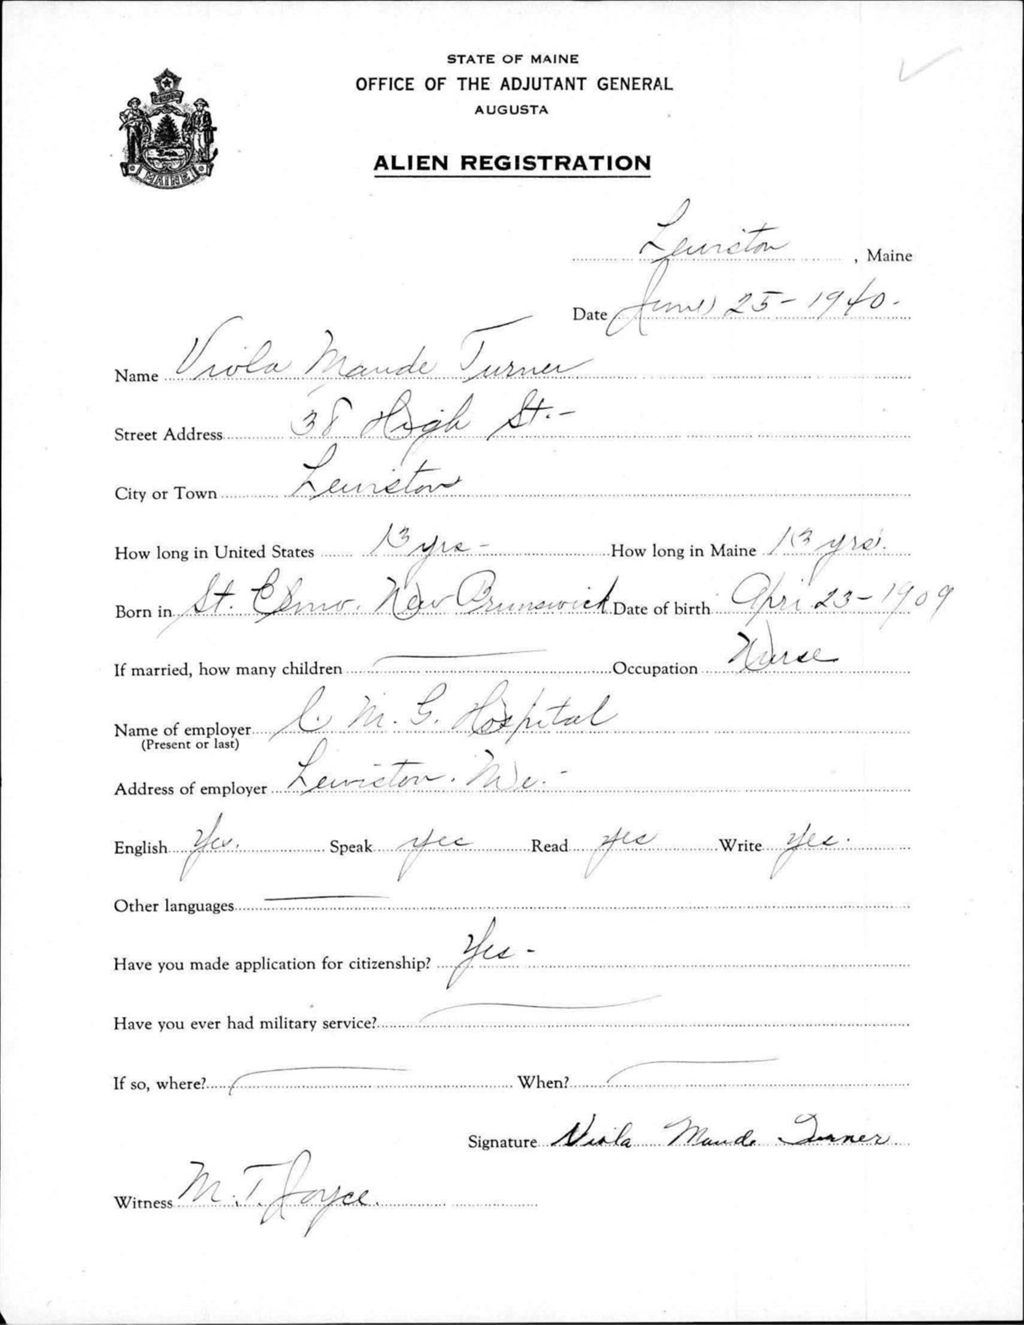 STATE OF MAINE
OFFICE OF THE ADJUTANT GENERAL
AUGUSTA
ALIEN REGISTRATION
MAINE
Lewiston, Maine
Date June 25 - 1940.
Name Viola Maude Turner
Street Address 38 High St. -
City or Town Lewiston
How long in United States 13 yrs - How long in Maine 13 yrs.
Born in St. Elmo. New Brunswick Date of birth Apri 23 - 1909
If married, how many children Occupation Nurse
Name of employer C. M. G. Hospital
(Present or last)
Address of employer Lewiston. Me. -
English Yes. Speak yes Read yes Write yes.
Other languages
Have you made application for citizenship? Yes -
Have you ever had military service?
If so, where? When?
Signature Viola Maude Turner
Witness M. T. Joyce.